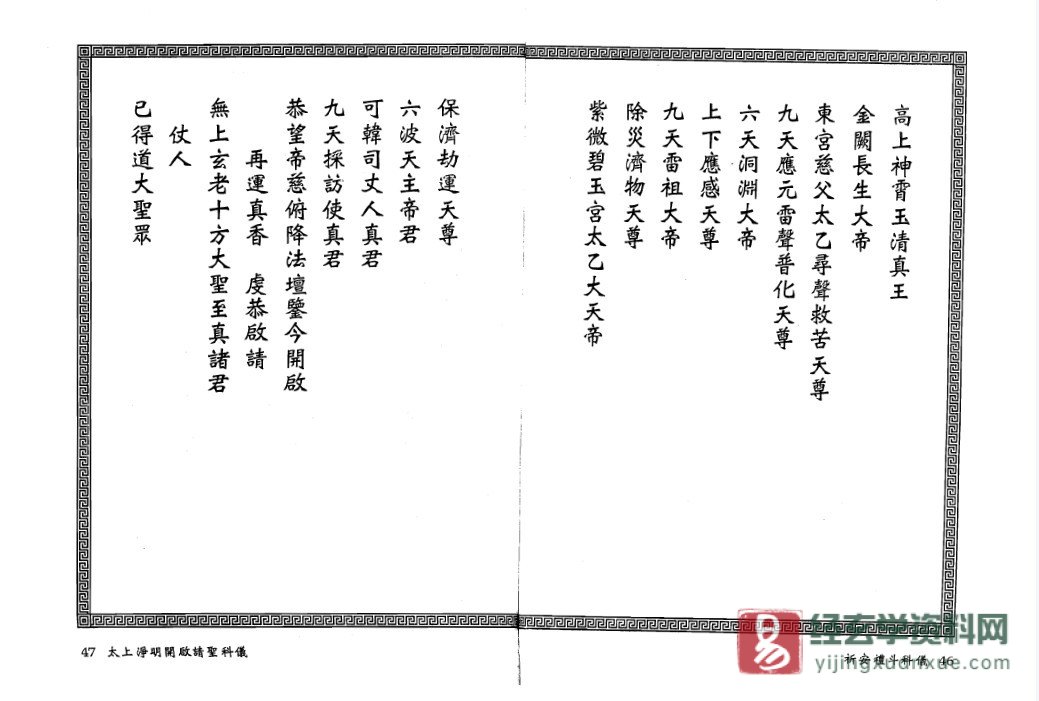 高上神霄玉清真王
金闕長生大帝
東宮慈父太乙尋聲救苦天尊
九天應元雷聲普化天尊
六天洞淵大帝
上下應感天尊
九天雷祖大帝
除災濟物天尊
紫微碧玉宮太乙大天帝
祈安禮斗科儀 46
保濟劫運天尊
六波天主帝君
可韓司丈人真君
九天採訪使真君
恭望帝慈俯降法壇鑒今開啟
再運真香 虔恭啟請
無上玄老十方大聖至真諸君
仗人
已得道大聖眾
47 太上淨明開啟請聖科儀
易
经玄学资料网
yijingxuanxue.net